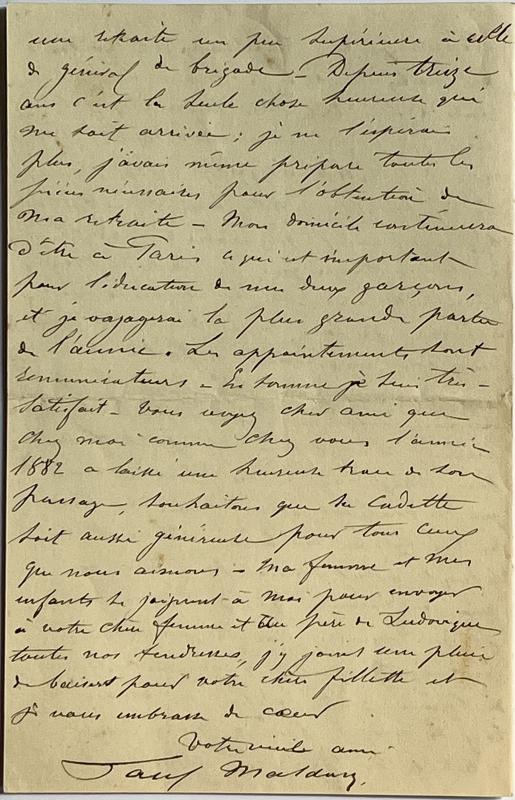 une retraite un peu supérieure à celle
de général de brigade – Depuis treize
ans c'est la seule chose heureuse qui
me soit arrivée ; je ne l'espérais
plus, j'avais même préparé toutes les
pièces nécessaires pour l'obtention de
ma retraite – Mon domicile continuera
d'être à Paris ce qui est important
pour l'éducation de mes deux garçons,
et je voyagerai la plus grande partie
de l'année. Les appointements sont
rémunérateurs – En somme je suis très-
satisfait – Vous voyez cher ami que
chez moi comme chez vous l'année
1882 a laissé une heureuse trace de son
passage, souhaitons que sa cadette
soit aussi généreuse pour tous ceux
que nous aimons – Ma femme et mes
enfants se joignent à moi pour envoyer
à votre chère femme et au père de Ludovique
toutes nos tendresses, j'y joins une pluie
de baisers pour votre chère fillette et
je vous embrasse de cœur
Votre vieil ami